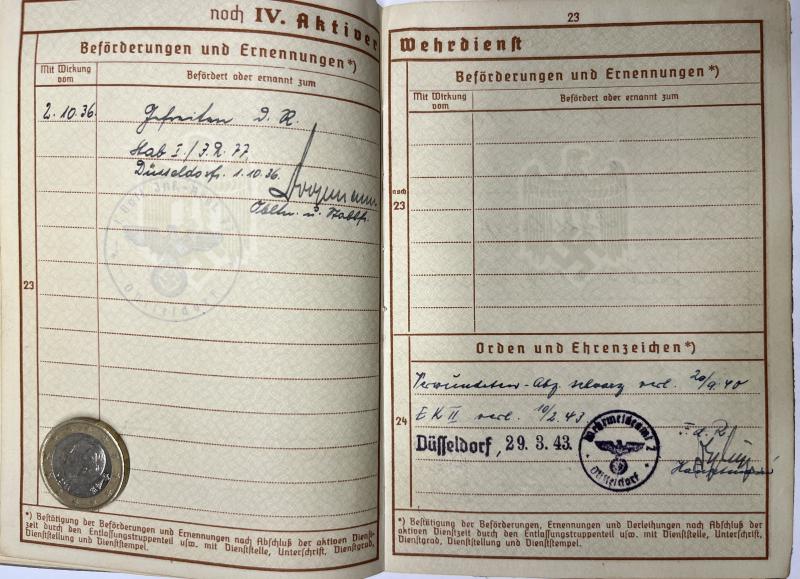 noch IV. Aktiver
Beförderungen und Ernennungen*)
Mit Wirkung
vom
Befördert oder ernannt zum
2.10.36.
Gefreiten d. R.
Stab I./J.R. 77
Düsseldorf, 1.10.36.
Obltn. u.
23
*) Bestätigung der Beförderungen und Ernennungen nach Abschluß der aktiven Dienst-
zeit durch den Entlassungstruppenteil usw. mit Dienststelle, Unterschrift, Dienstgrad,
Dienststellung und Dienststempel.
23
Wehrdienst
Beförderungen und Ernennungen*)
Mit Wirkung
vom
Befördert oder ernannt zum
noch
23
Orden und Ehrenzeichen*)
Verwundeten-Abz. schwarz verl. 20/9.40
24
E K II verl. 10/2.43.
Düsseldorf, 29. 3. 43.
Wehrmeldeamt 2
Düsseldorf
F. d. R.
*) Bestätigung der Beförderungen, Ernennungen und Verleihungen nach Abschluß der
aktiven Dienstzeit durch den Entlassungstruppenteil usw. mit Dienststelle, Unterschrift,
Dienstgrad, Dienststellung und Dienststempel.